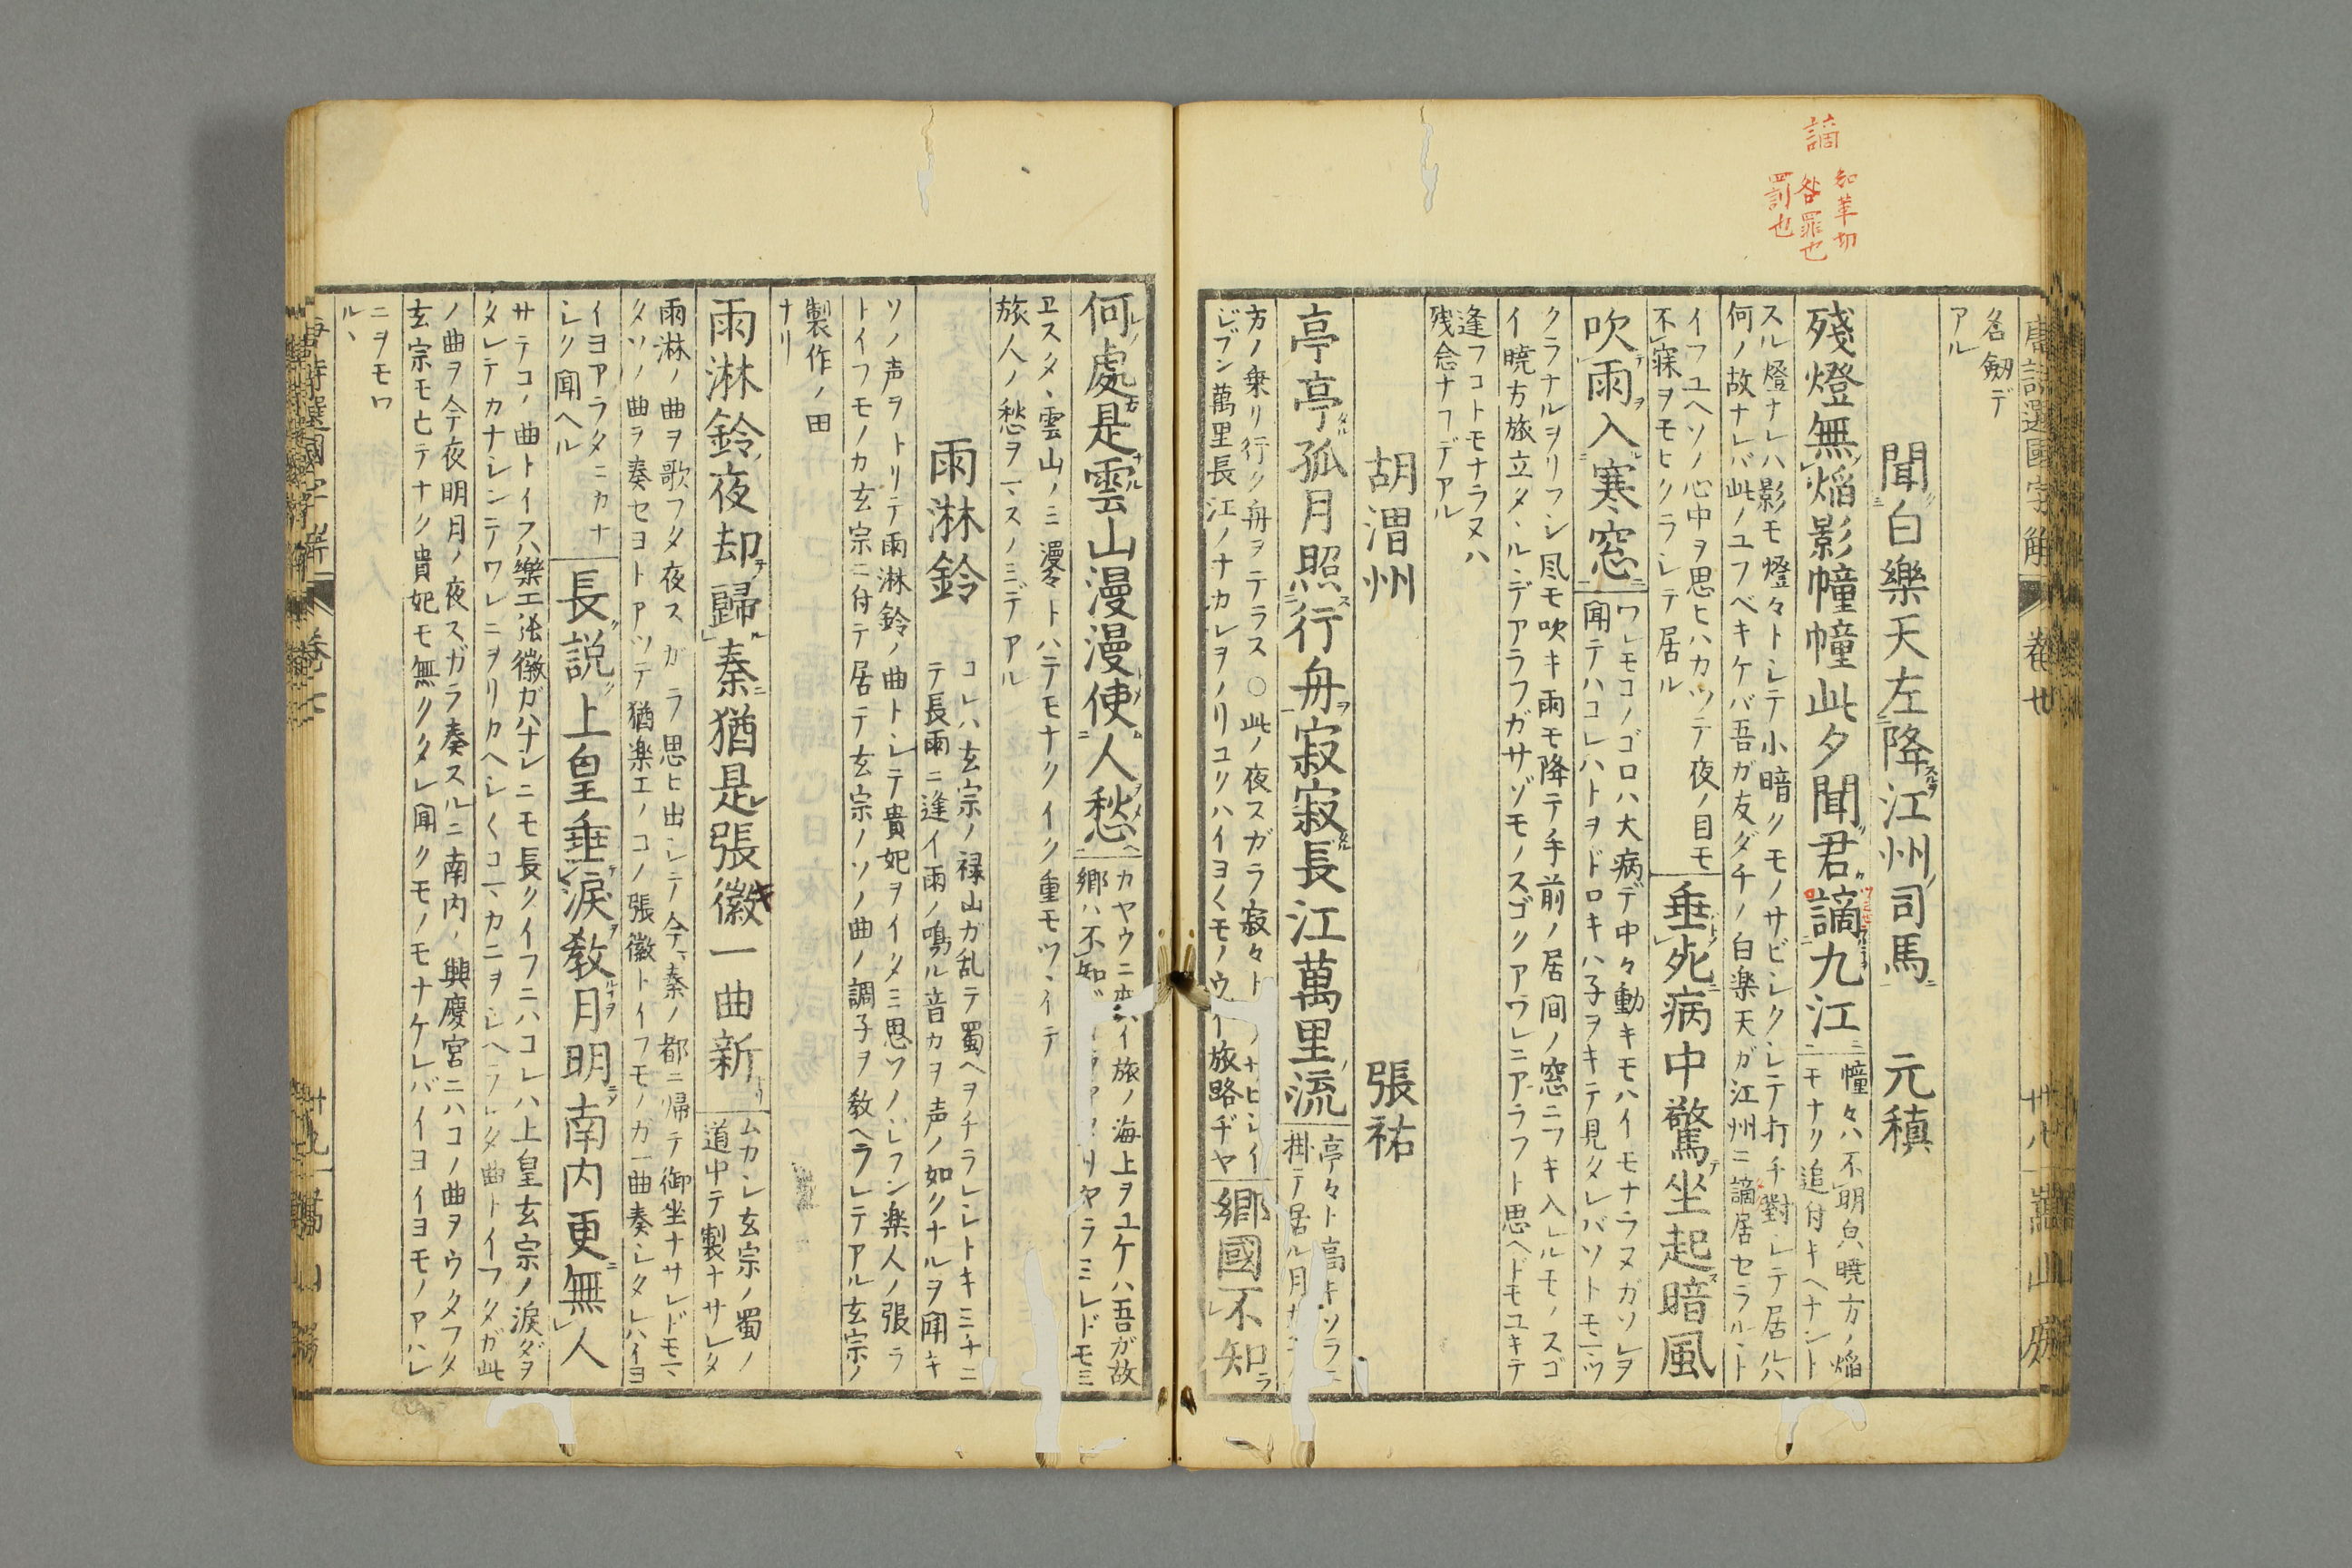 謫
知革切
咎罪也
罰也
名劔デ
アル
聞白樂天左降江州司馬 元稹
殘燈無焔影幢幢此夕聞君謫九江
幢々ハ不明皃暁方ノ焔
モナク追付キヘナント
スル燈ナレハ影モ燈々トシテ小暗クモノサビシクシテ打チ對シテ居ルハ
何ノ故ナレバ此ノユフベキケバ吾ガ友ダチノ白楽天ガ江州ニ謫居セラルヽト
イフユヘソノ心中ヲ思ヒハカツテ夜ノ目モ
不寐ヲモヒクラシテ居ル
垂死病中驚坐起暗風
吹雨入寒窓
ワレモコノゴロハ大病デ中々動キモハイモナラヌガソレヲ
聞テハコレハトヲドロキハ子ヲキテ見タレバソトモニツ
クラナルヲリフシ风モ吹キ雨モ降テ手前ノ居間ノ窓ニフキ入ルモノスゴ
イ暁方旅立タヽルデアラフガサゾモノスゴクアワレニアラフト思ヘドモユキテ
逢フコトモナラヌハ
残念ナフデアル
胡渭州 張祐
亭亭孤月照行舟寂寂長江萬里流
亭々ト高キソラニ
掛テ居ル月
方ノ乗リ行ク舟ヲテラス○此ノ夜スガラ寂々ト
ジブン萬里長江ノナカレヲノリユクハイヨ〱モノウイ旅路ヂヤ
鄉國不知
何處是雲山漫漫使人愁
旅ノ海上ヲユケハ吾が故
鄉ハ不知
ヤラミレドモミ
エスタヽ雲山ノミ漫々トハテモナクイク重モツヽイテ
旅人ノ愁ヲマスノミデアル
雨淋鈴
コレハ玄宗ノ禄山ガ乱テ蜀ヘヲチラレシトキミチニ
テ長雨ニ逢イ雨ノ鳴ル音カヲ声ノ如クナルヲ聞キ
ソノ声ヲトリテ雨淋鈴ノ曲トシテ貴妃ヲイタミ思ツノレフシ楽人ノ張ラ
トイフモノカ玄宗ニ付テ居テ玄宗ノソノ曲ノ調子ヲ教ヘラレテアル玄宗ノ
製作ノ由
ナリ
雨淋鈴夜却歸秦猶是張徽一曲新
ムカシ玄宗ノ蜀ノ
道中テ製ナサレタ
雨淋ノ曲ヲ歌フタ夜スガラ思ヒ出シテ今ヽ秦ノ都ニ帰テ御坐ナサレドモマヽ
タソノ曲ヲ奏セヨトアツテ猶楽工ノコノ張徽トイフモノガ一曲奏シタレハイヨ
イヨアラタニカナ
シク聞ヘル
長説上皇垂涙教月明南内更無人
サテコノ曲トイフハ樂工張徽ガハナシニモ長クイフニハコレハ上皇玄宗ノ涙ヲ
タレテカナシンテワレニヲリカヘシ〱コマカニヲシヘラレタ曲トイフタガ此
ノ曲ヲ今夜明月ノ夜スガラ奏スルニ南内ノ興慶宮ニハコノ曲ヲウタフタ
玄宗モ亡テナク貴妃モ無クタレ聞クモノモナケレバイヨイヨモノアハレ
ニヲモワ
ルヽ
唐詩選國字解 巻七 廿八 嵩山房
唐詩選國字解 巻七 廿九 嵩山房